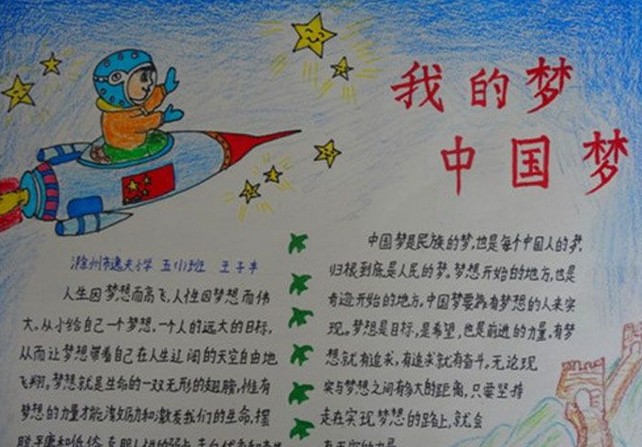 我的梦
中国梦
滁州市逸夫小学 五(1)班 王子丰
人生因梦想而高飞,人性因梦想而伟
大。从小给自己一个梦想,一个人的远大的目标,
从而让梦想带着自己在人生辽阔的天空自由地
飞翔。梦想就是生命的一双无形的翅膀,惟有
梦想的力量才能激发我们的生命,摆
中国梦是民族的梦,也是每个中国人的梦.
归根到底是人民的梦。梦想开始的地方,也是
奇迹开始的地方。中国梦要靠有梦想的人来实
现。梦想是目标,是希望,也是前进的力量。有梦
想就有追求,有追求就有奋斗。无论现
实与梦想之间有多大的距离,只要坚持
走在实现梦想的路上,就会